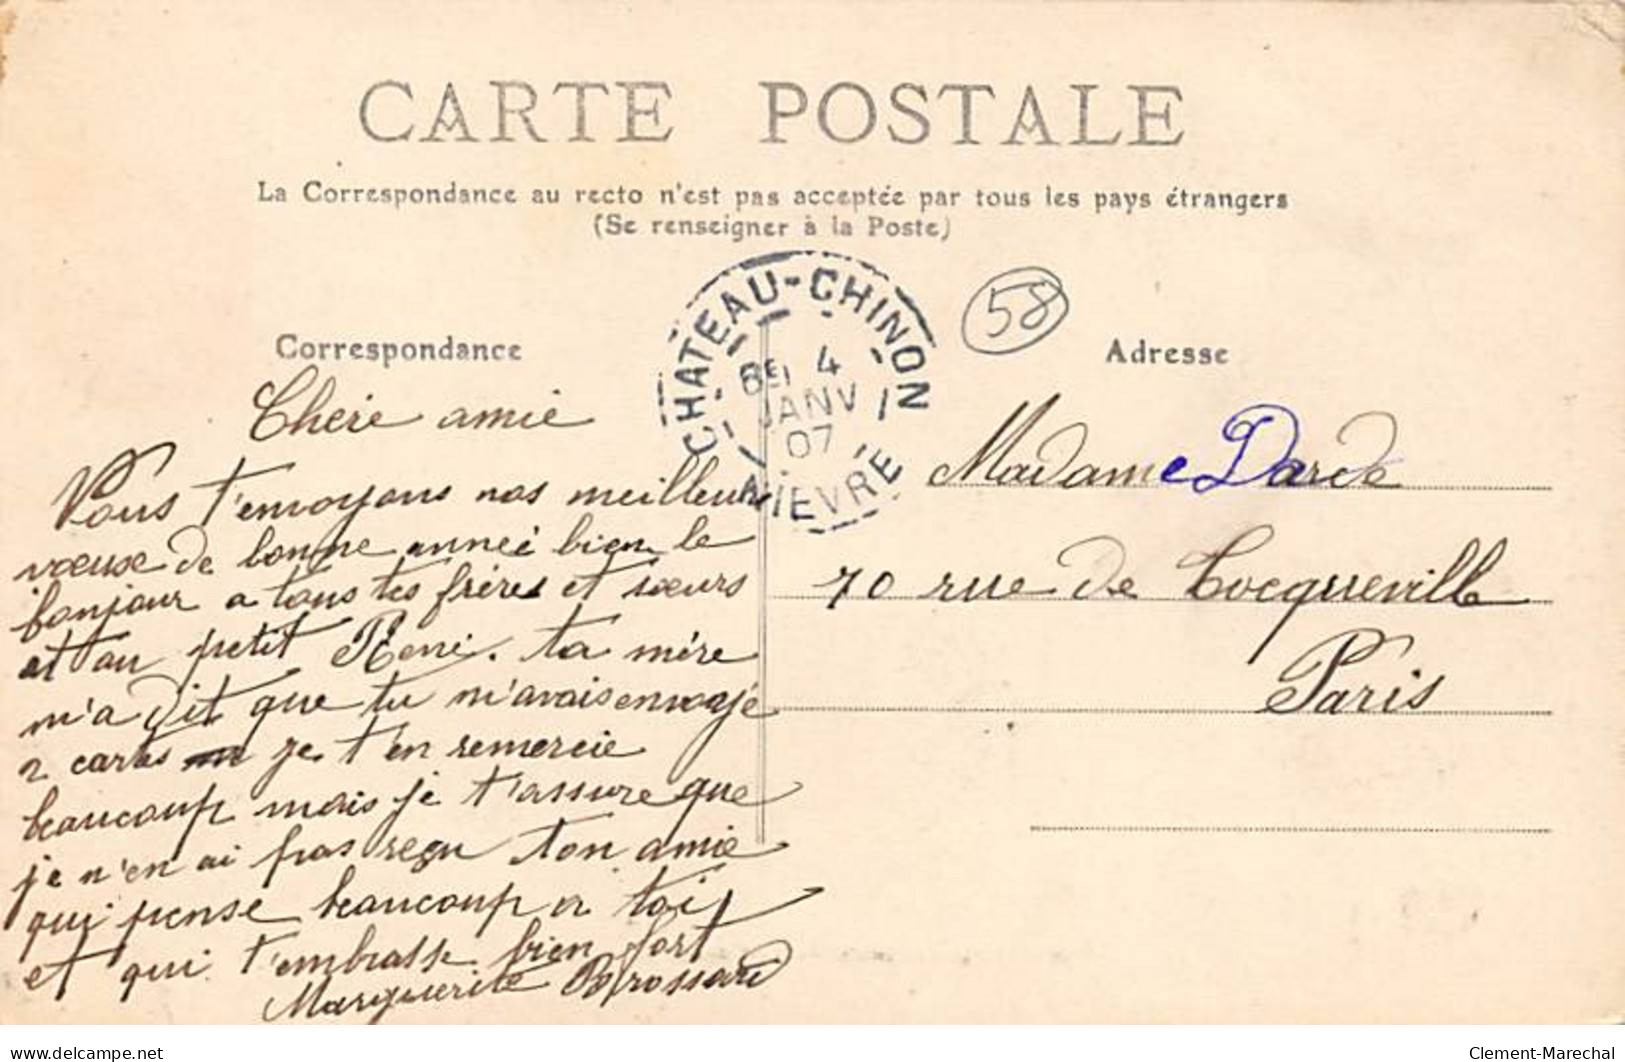 CARTE POSTALE
La Correspondance au recto n'est pas acceptée par tous les pays étrangers
(Se renseigner à la Poste)
CHATEAU-CHINON
4
JANV
07
NIEVRE
58
Correspondance
Chère amie
Vous t'envoyons nos meilleurs
vœuse de bonne année bien le
bonjour a tous tes frères et sœurs
et au petit René. ta mère
m'a dit que tu m'avais envoyé
2 cartes je t'en remercie
beaucoup mais je t'assure que
je n'en ai pas reçu ton amie
qui pense beaucoup a toi
et qui t'embrasse bien fort
Marguerite Brossard
Adresse
Madame Darde
70 rue de Tocqueville
Paris
www.delcampe.net
Clement-Marechal